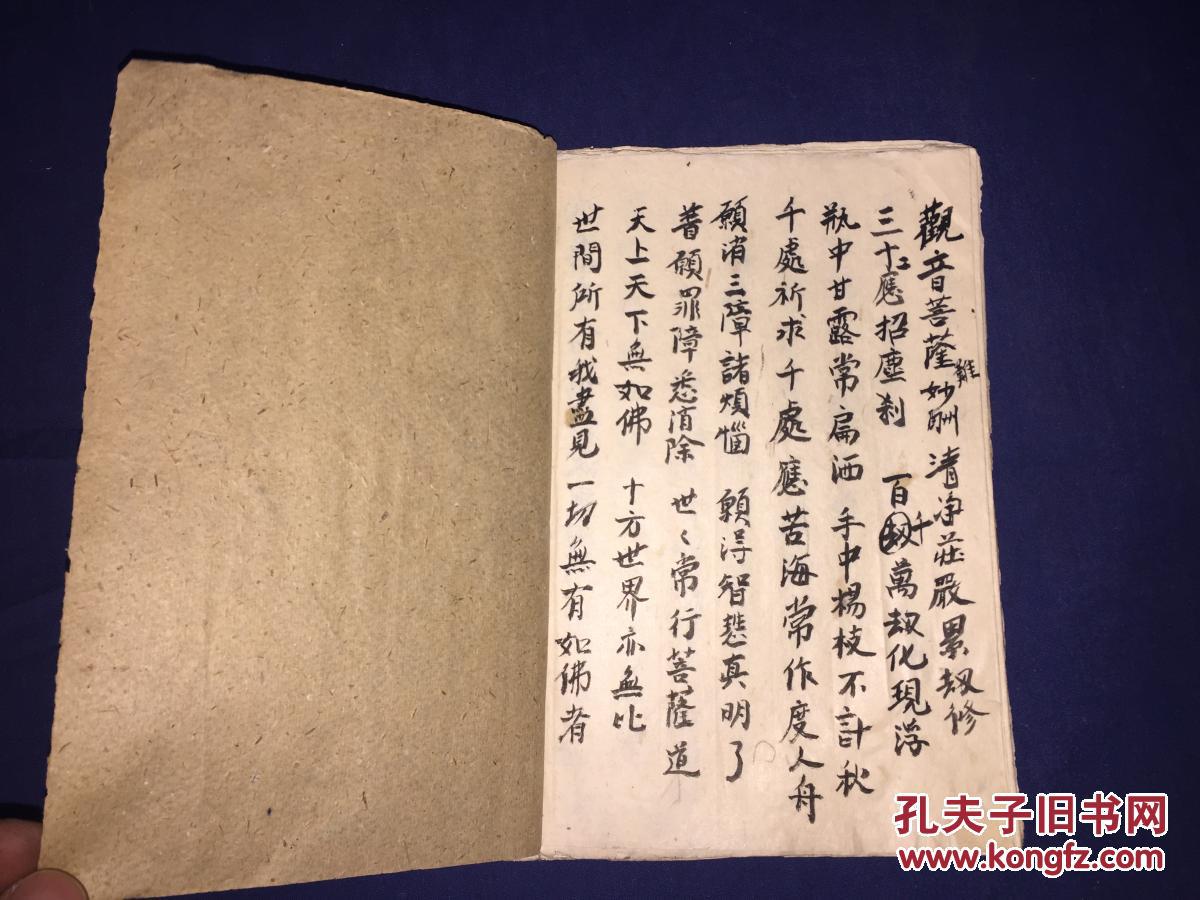 觀音菩薩妙難酬清净莊嚴累刼修
三十二應招塵刹 百千萬刼化現浮
瓶中甘露常扁洒 手中楊枝不計秋
千處祈求千處應苦海常作度人舟
願消三障諸煩惱 願得智慧真明了
普願罪障悉消除 世々常行菩薩道
天上天下無如佛 十方世界亦無比
世間所有我盡見 一切無有如佛者
孔夫子旧书网
www.kongfz.com